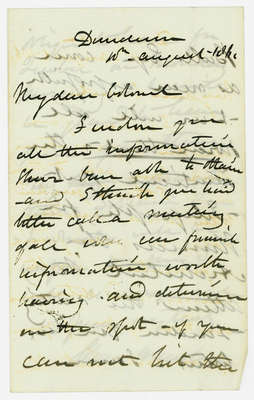 Dundurn
10th August 186
My dear Colonel
I endorse you
all the information
I have been able to obtain
and I think you had
better call a meeting
of all who can furnish
information worth
having and determine
on the spot - if you
can not hit the